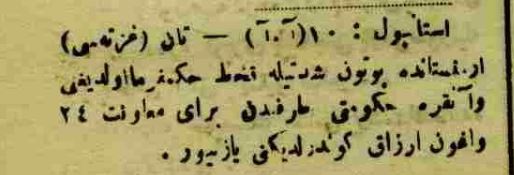 استانبول : ١٠ (آ.آ) — تان (غزته‌سی)
ارمنستانده بوتون شدتیله قحط حکمفرما اولدیغی
وآنقره حکومتی طرفندن برای معاونت ٢٤
واغون ارزاق کوندرلدیکنی یازیور .